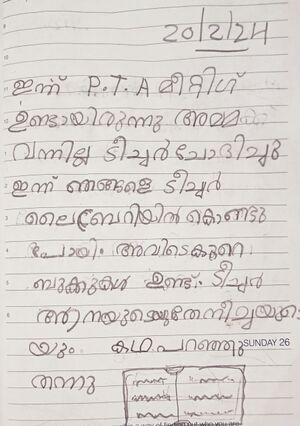 20/2/24
ഇന്ന് P.T.A മീറ്റിഗ്
ഉണ്ടായിരുന്നു അമ്മ
വന്നില്ല ടീച്ചർ ചോദിച്ചു
ഇന്ന് ഞങ്ങളെ ടീച്ചർ
ലൈബ്രേറിയിൽ കൊണ്ടു
പോയി. അവിടെ കുറെ
ബുക്കുകൾ ഉണ്ട്. ടീച്ചർ
ആനയുടെയും
യും കഥ പറഞ്ഞു SUNDAY 26
തന്നു